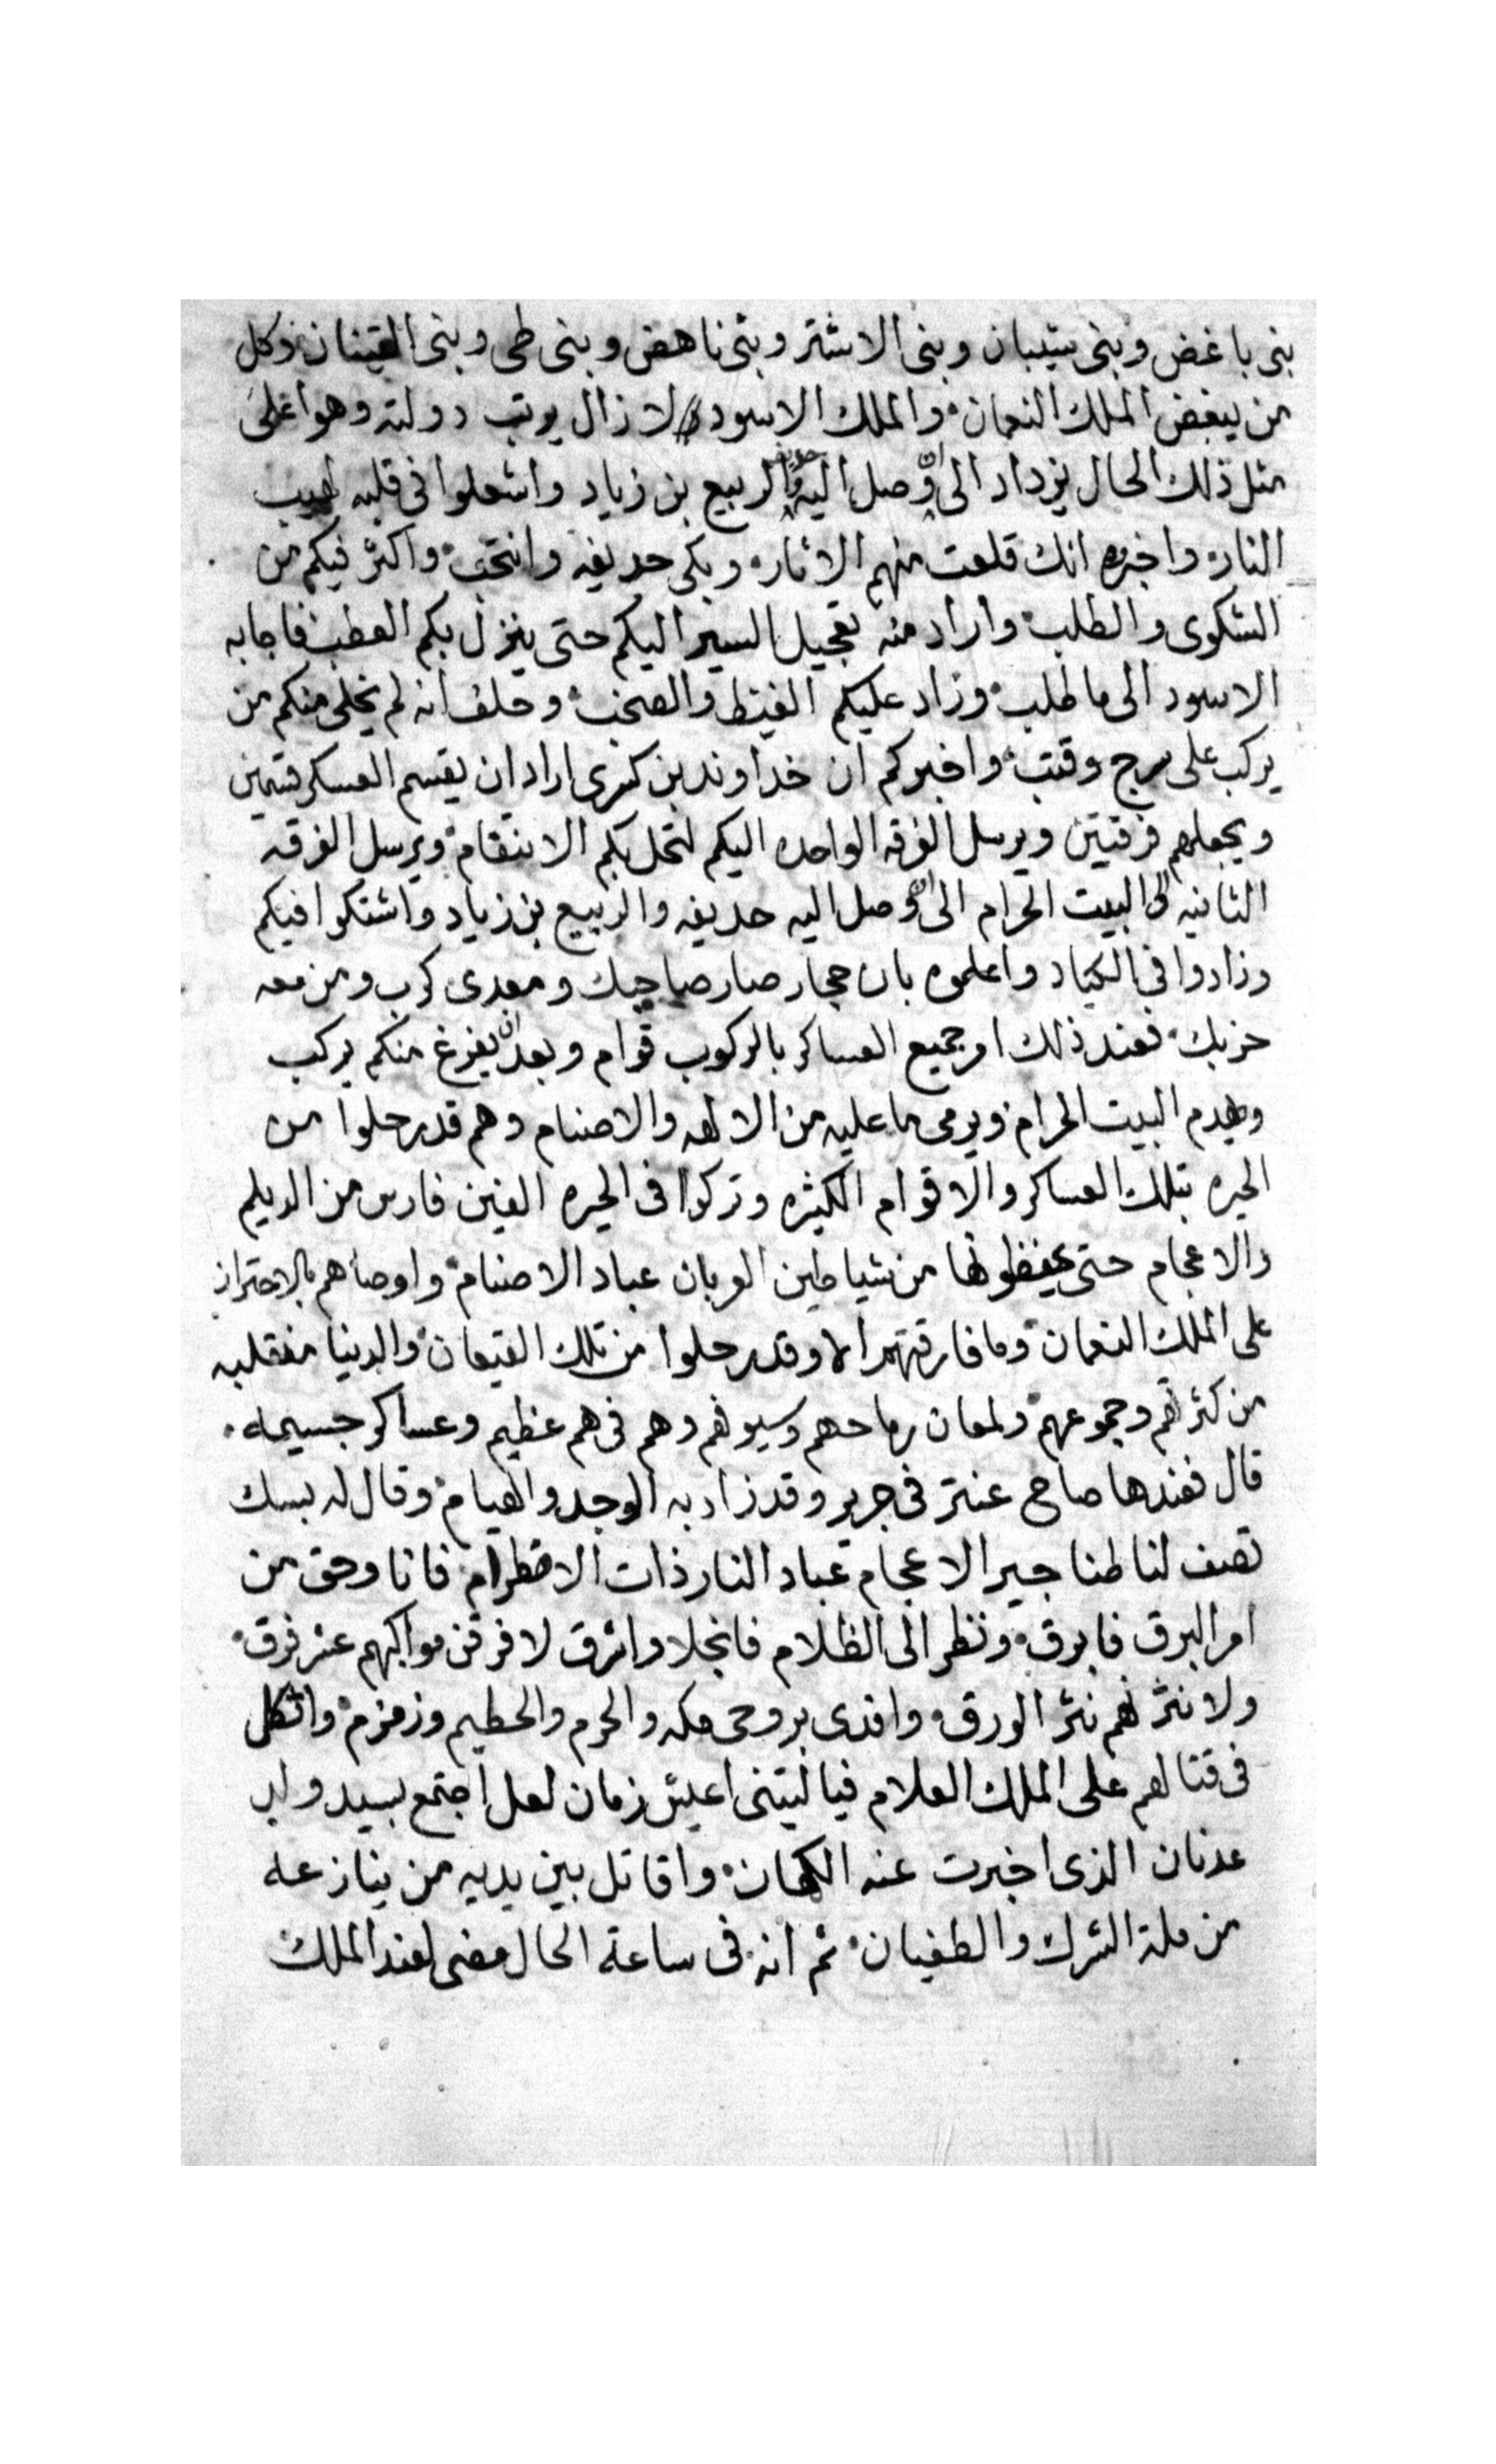 بنى باغض وبنى شيبان وبنى الاشتر وبنى ناهض وبنى طى وبنى القينان وكل
من يبغض الملك النعمان والملك الاسود لا زال يرتب دولته وهو اعلى
مثل ذلك الحال يزداد الى ان وصل اليه حديفه والربيع بن زياد واشعلوا فى قلبه لهيب
النار واخبره انك قلعت منهم الاثار وبكى حديفه وانتحب واكثر فيكم من
الشكوى والطلب واراد منه تعجيل السير اليكم حتى ينزل بكم العطب فاجابه
الاسود الى ما طلب وزاد عليكم الغيظ والصخب وحلف انه لم يخلى منكم من
يركب على سرج وقتب واخبركم ان خداوند بن كسرى اراد ان يقسم العسكر قسمين
ويجعلهم فرقتين ويرسل الفرقه الواحده اليكم لتحل بكم الانتقام ويرسل الفرقه
الثانيه الى البيت الحرام الى ان وصل اليه حديفه والربيع بن زياد واشتكوا فيكم
وزادوا فى الكياد واعلموه بان حجار صار صاحبك ومعدى كرب ومن معه
حزبك فعند ذلك امر جميع العساكر بالركوب قوام وبعد ان يفرغ منكم يركب
ويهدم البيت الحرام ويرمى ما عليه من الالهه والاصنام وهم قد رحلوا من
الحيره بتلك العساكر والاقوام الكثيره وتركوا فى الحيره الفين فارس من الديلم
والاعجام حتى يحفظونها من شياطين العربان عباد الاصنام واوصاهم بالاحتراز
على الملك النعمان وما فارقتهم الا وقد رحلوا من تلك القيعان والدنيا منقلبه
من كثرتهم وجموعهم ولمعان رماحهم وسيوفهم وهم فى هم عظيم وعساكر جسيمه
قال فعندها صاح عنتر فى جرير وقد زاد به الوجد والهيام وقال له بسك
تصف لنا طناجير الاعجام عباد النار ذات الاضطرام فانا وحق من
امر البرق فابرق ونظر الى الظلام فانجلا واشرق لا فرقن مواكبهم عشر فرق
ولا نثرنهم نثر الورق وافدى بروحى مكه والحرم والحطيم وزمزم واتكل
فى قتالهم على الملك العلام فيا ليتنى اعيش زمان لعل اجتمع بسيد ولد
عدنان الذى اخبرت عنه الكهان واقاتل بين يديه من ينازعه
من ملة الشرك والطغيان ثم انه فى ساعة الحال مضى لعند الملك